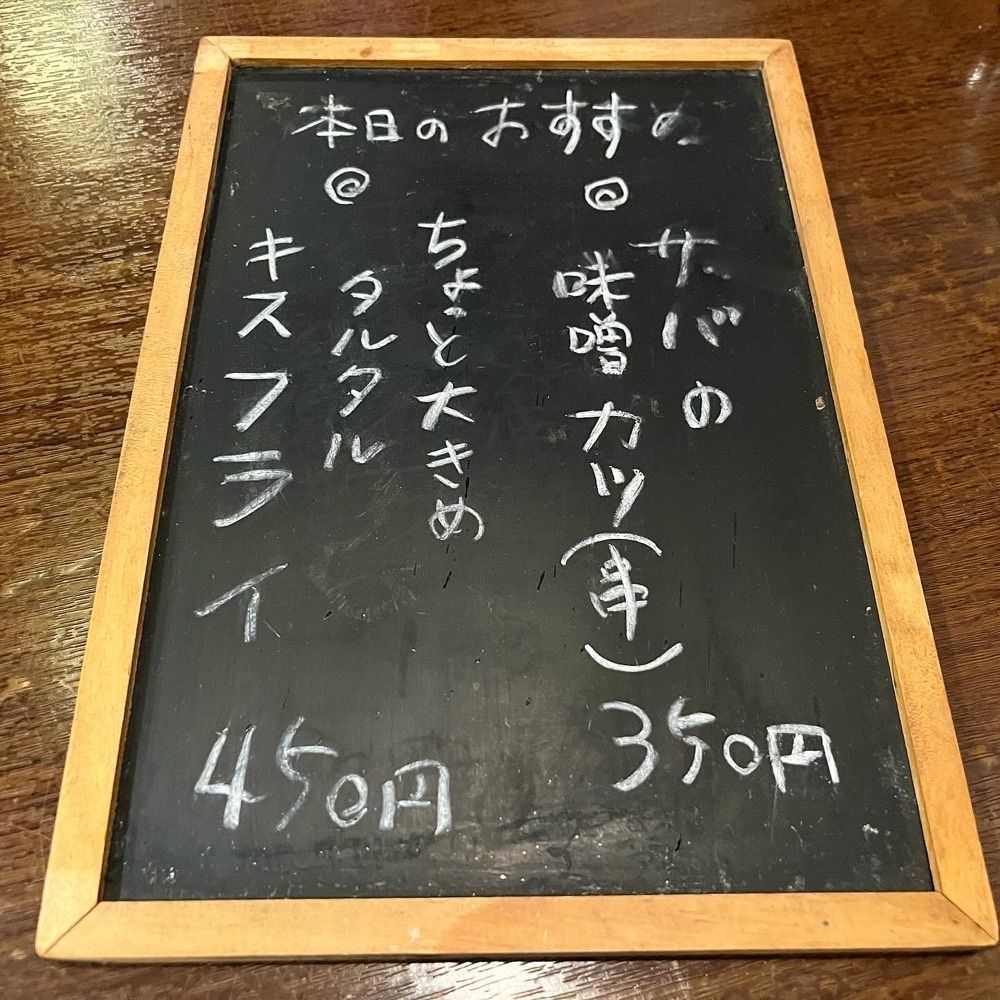 本日のおすすめ
◎
サバの
味噌カツ(串)
350円
◎
ちょっと大きめ
タルタル
キスフライ
450円